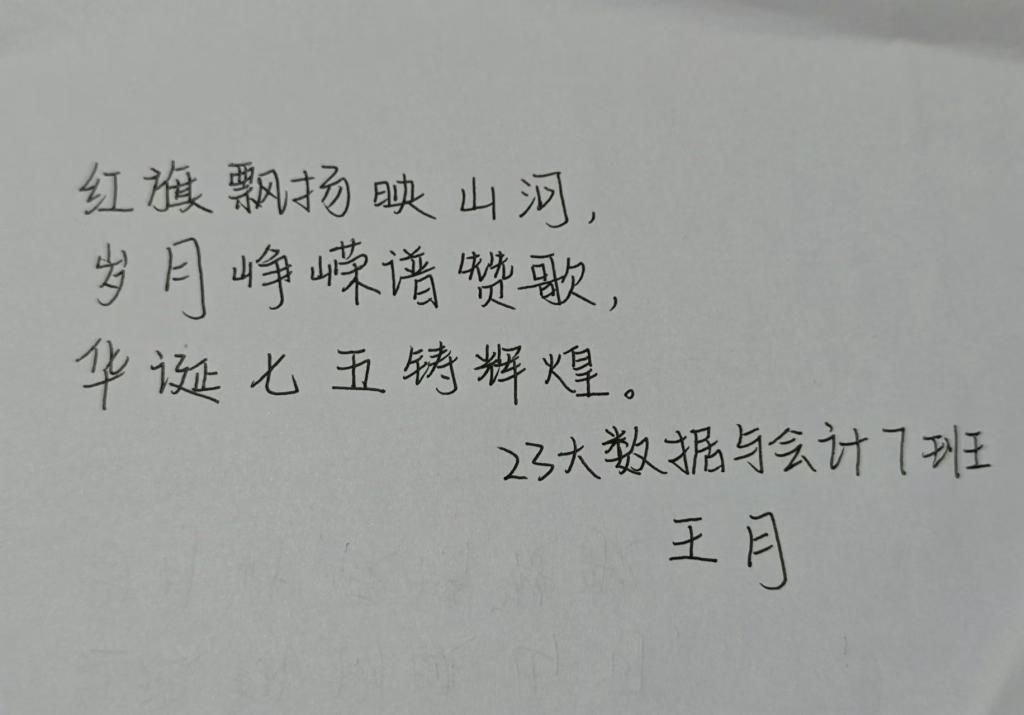 红旗飘扬映山河,
岁月峥嵘谱赞歌,
华诞七五铸辉煌。
23大数据与会计7班
王月